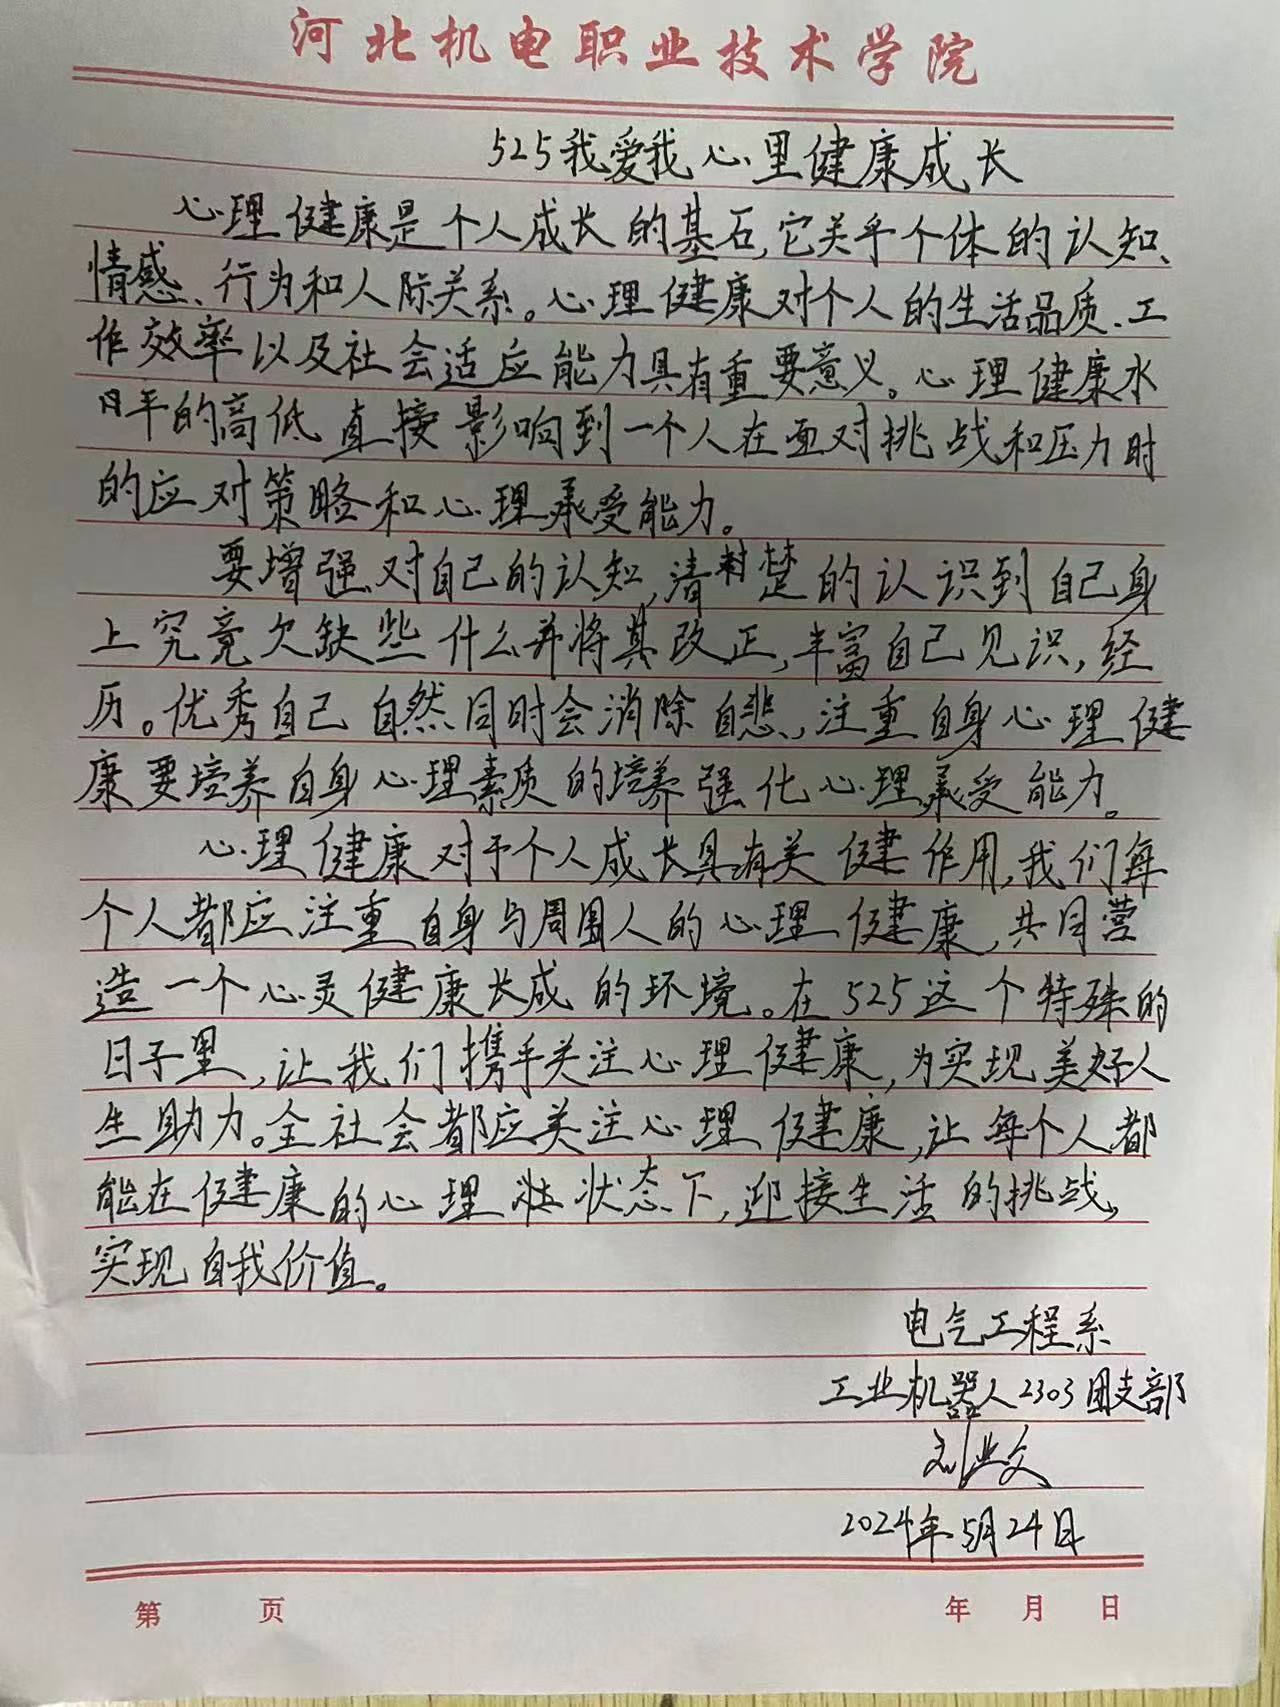 河北机电职业技术学院
525我爱我心里健康成长
心理健康是个人成长的基石,它关乎个体的认知、
情感、行为和人际关系。心理健康对个人的生活品质、工
作效率以及社会适应能力具有重要意义。心理健康水
平的高低直接影响到一个人在面对挑战和压力时
的应对策略和心理承受能力。
要增强对自己的认知,清楚的认识到自己身
上究竟欠缺些什么并将其改正,丰富自己见识,经
历。优秀自己自然同时会消除自悲,注重自身心理健
康要培养自身心理素质的培养强化心理承受能力。
心理健康对于个人成长具有关健作用,我们每
个人都应注重自身与周围人的心理健康,共同营
造一个心灵健康长成的环境。在525这个特殊的
日子里,让我们携手关注心理健康,为实现美好人
生助力。全社会都应关注心理健康,让每个人都
能在健康的心理状态下,迎接生活的挑战,
实现自我价值。
电气工程系
工业机器人2303团支部
刘业文
2024年5月24日
第 页 年 月 日